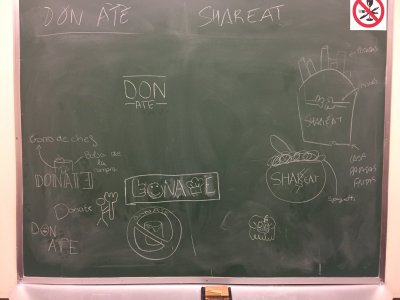 DON ATE
SHAREAT
DON
ATE
SHAREAT
Gorro de chef
Bolsa de
la
compra
DONATE
DONATE
SHAREAT
Donate
Spaghetti
DONATE
DON
ATE